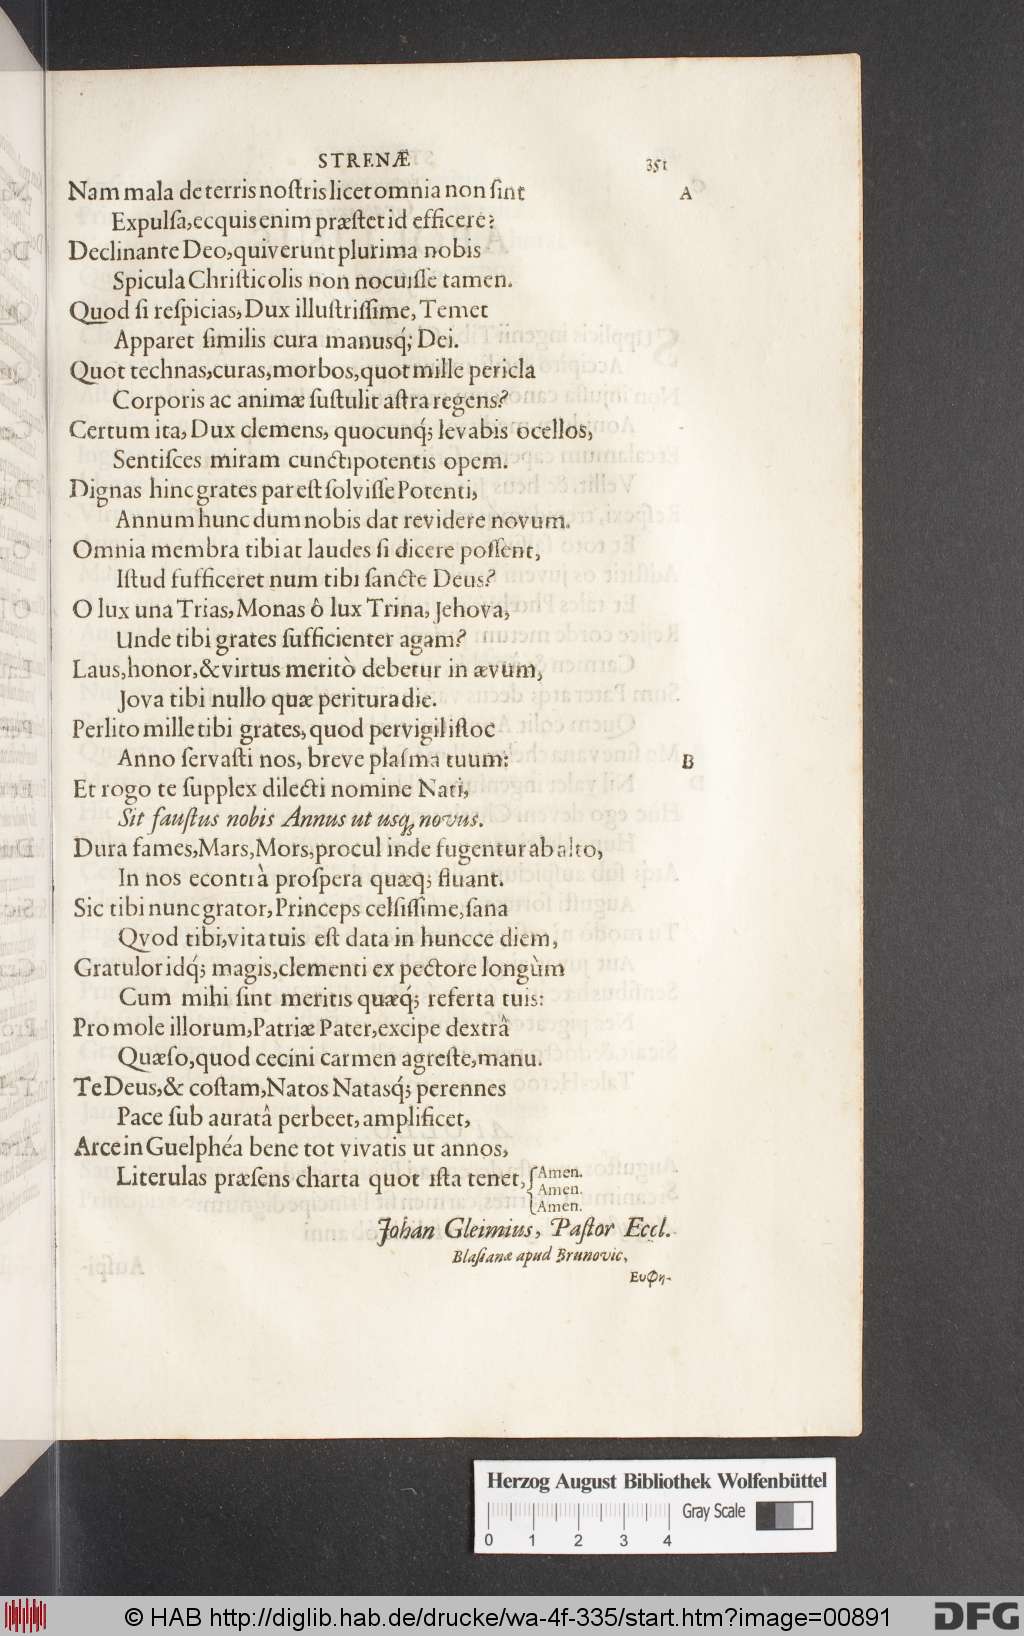 STRENÆ 351
Nam mala de terris noſtris licet omnia non ſint A
Expulſa, ecquis enim præſtet id efficere?
Declinante Deo, quiverunt plurima nobis
Spicula Chriſticolis non nocuiſſe tamen.
Quod ſi reſpicias, Dux illuſtriſſime, Temet
Apparet ſimilis cura manusq́; Dei.
Quot technas, curas, morbos, quot mille pericla
Corporis ac animæ ſuſtulit aſtra regens?
Certum ita, Dux clemens, quocunq́; levabis ocellos,
Sentiſces miram cunctipotentis opem.
Dignas hinc grates par eſt ſolviſſe Potenti,
Annum hunc dum nobis dat revidere novum.
Omnia membra tibi at laudes ſi dicere poſſent,
Iſtud ſufficeret num tibi ſancte Deus?
O lux una Trias, Monas ô lux Trina, Jehova,
Unde tibi grates ſufficienter agam?
Laus, honor, & virtus meritò debetur in ævum,
Jova tibi nullo quæ peritura die.
Perlito mille tibi grates, quod pervigil iſtoc
Anno ſervaſti nos, breve plaſma tuum: B
Et rogo te ſupplex dilecti nomine Nati,
Sit fauſtus nobis Annus ut usq; novus.
Dura fames, Mars, Mors, procul inde fugentur ab alto,
In nos econtrà proſpera quæq; fluant.
Sic tibi nunc grator, Princeps celſiſſime, ſana
Qvod tibi, vita tuis eſt data in huncce diem,
Gratulor idq́; magis, clementi ex pectore longùm
Cum mihi ſint meritis quæq́; referta tuis:
Pro mole illorum, Patriæ Pater, excipe dextrâ
Quæſo, quod cecini carmen agreſte, manu.
Te Deus, & coſtam, Natos Natasq́; perennes
Pace ſub auratâ perbeet, amplificet,
Arce in Guelphéa bene tot vivatis ut annos,
Literulas præſens charta quot iſta tenet, { Amen.
Amen.
Amen.
Johan Gleimius, Paſtor Eccl.
Blaſianæ apud Brunovic,
Ευφη-
Herzog August Bibliothek Wolfenbüttel
Gray Scale
0 1 2 3 4
© HAB http://diglib.hab.de/drucke/wa-4f-335/start.htm?image=00891 DFG